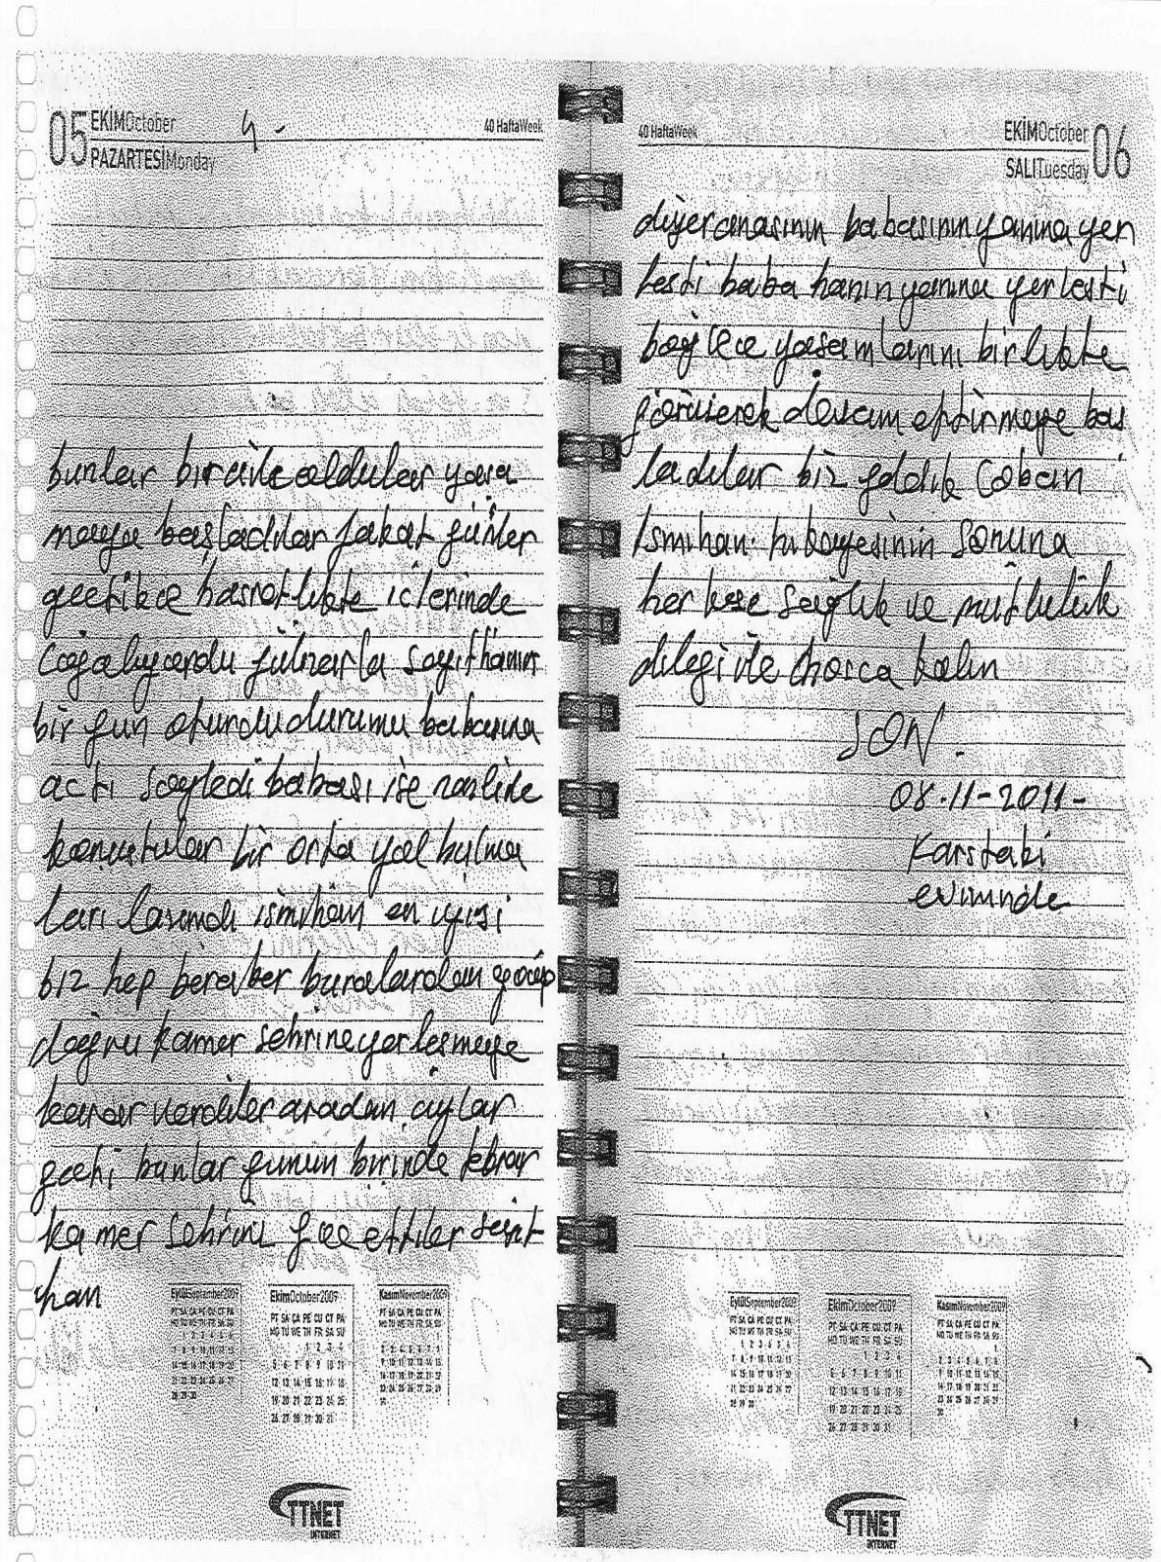 05 EKİMOctober 4 - 40 HaftaWeek
PAZARTESİMonday
bunlar bir aile oldular yaşa
maya başladılar fakat günler
geçtikce hasretlikte iclerinde
Coğalıyordu gülnarla sayithanın
bir gun oturdu durumu babasına
actı söyledi babası ise naslide
konuştular bir orta yol bulma
ları lazımdı ismihan en iyisi
biz hep beraber buralardan göcüp
doğru kamer sehrine yerleşmeye
karar verdiler aradan aylar
gecti bunlar gunun birinde tekrar
kamer sehrine göc ettiler seyit
han
EylülSeptember2009 EkimOctober2009 KasımNovember2009
TTNET
INTERNET
40 HaftaWeek EKİMOctober 06
SALITuesday
diğer anasının babasının yanına yer
lesti baba hanın yanına yerlesti
böylece yasamlarını birlikte
görüserek devam ettirmeye bas
ladılar biz geldik Coban
Ismihan hikayesinin sonuna
herkese sağlık ve mutluluk
dileği ile hosca kalın
SON.
08.11-2011-
Karstaki
evimnde
EylülSeptember2009 EkimOctober2009 KasımNovember2009
TTNET
INTERNET